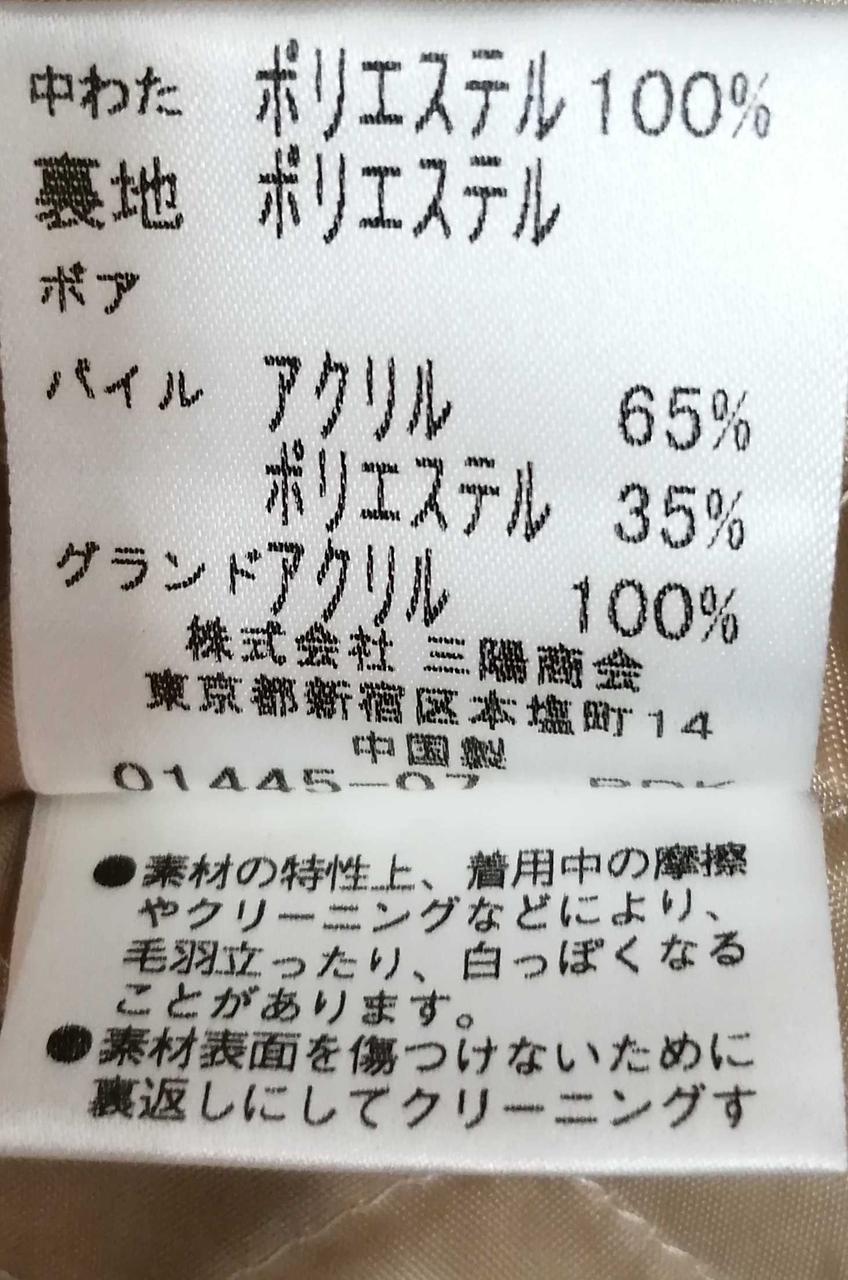 中わた ポリエステル100%
裏地 ポリエステル
ボア
パイル アクリル 65%
ポリエステル 35%
グランドアクリル 100%
株式会社 三陽商会
東京都新宿区本塩町14
中国製
01445-07
●素材の特性上、着用中の摩擦
やクリーニングなどにより、
毛羽立ったり、白っぽくなる
ことがあります。
●素材表面を傷つけないために
裏返しにしてクリーニングす